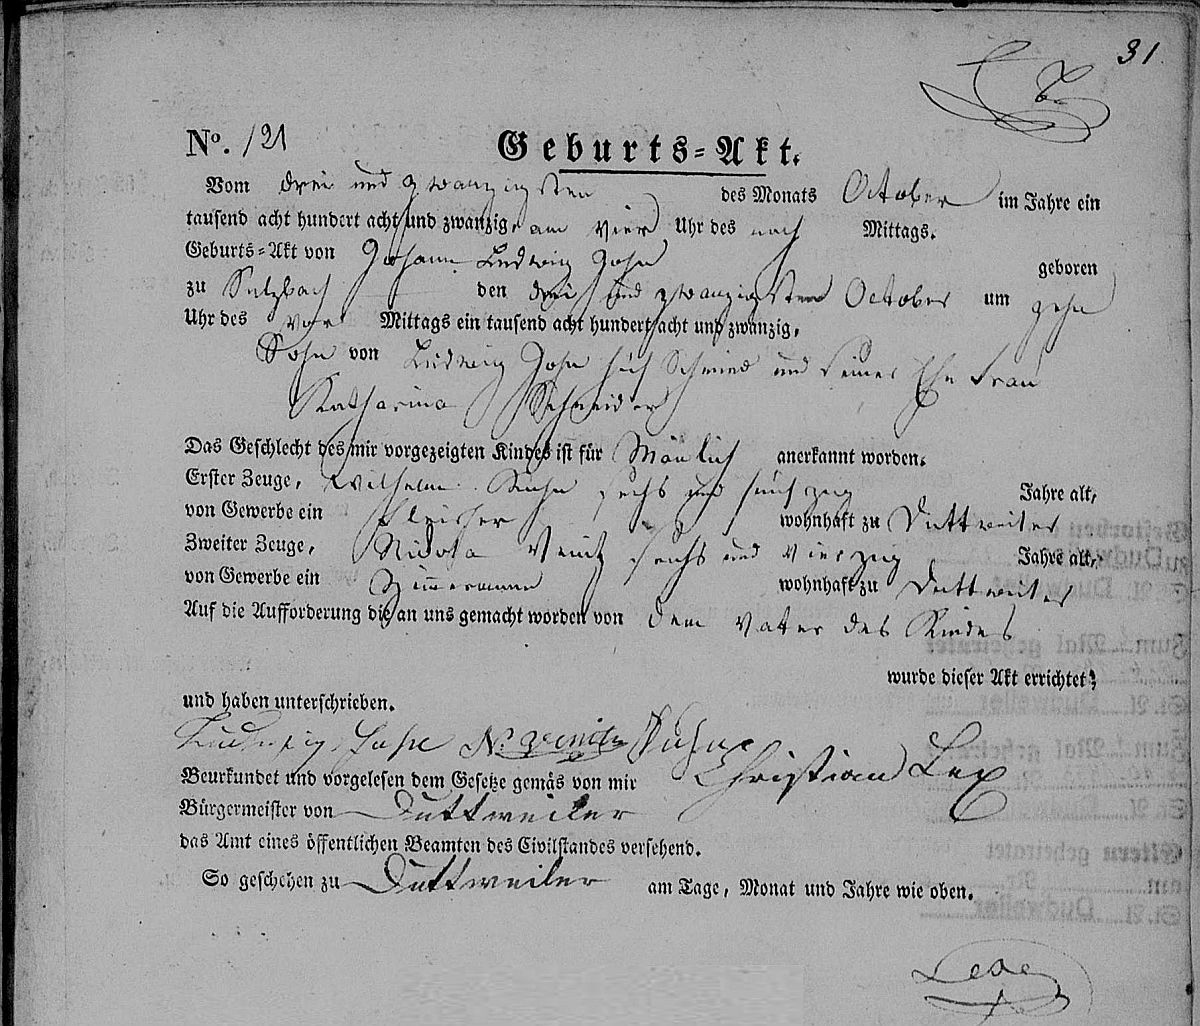 31
No. 121 Geburts-Akt.
Vom drei und zwanzigsten des Monats October im Jahre ein
tausend acht hundert acht und zwanzig, am vier Uhr des nach Mittags.
Geburts-Akt von Johann Ludwig geboren
zu Sulzbach den drei und zwanzigsten October um zehn
Uhr des vor Mittags ein tausend acht hundert acht und zwanzig,
Sohn von Ludwig Schmied und seiner Ehe Frau
Katharina Schneider
Das Geschlecht des mir vorgezeigten Kindes ist für Mänlich anerkannt worden.
Erster Zeuge, Wilhelm sechs und fünfzig Jahre alt,
von Gewerbe ein wohnhaft zu Duttweiler
Zweiter Zeuge, Nicola Venitz sechs und vierzig Jahre alt,
von Gewerbe ein Zim̄ermann wohnhaft zu Duttweiler
Auf die Aufforderung die an uns gemacht worden von dem Vater des Kindes
wurde dieser Akt errichtet;
und haben unterschrieben.
Ludwig N. Venitz
Beurkundet und vorgelesen dem Gesetze gemäs von mir Christian Lex
Bürgermeister von Duttweiler
das Amt eines öffentlichen Beamten des Civilstandes versehend.
So geschehen zu Duttweiler am Tage, Monat und Jahre wie oben.